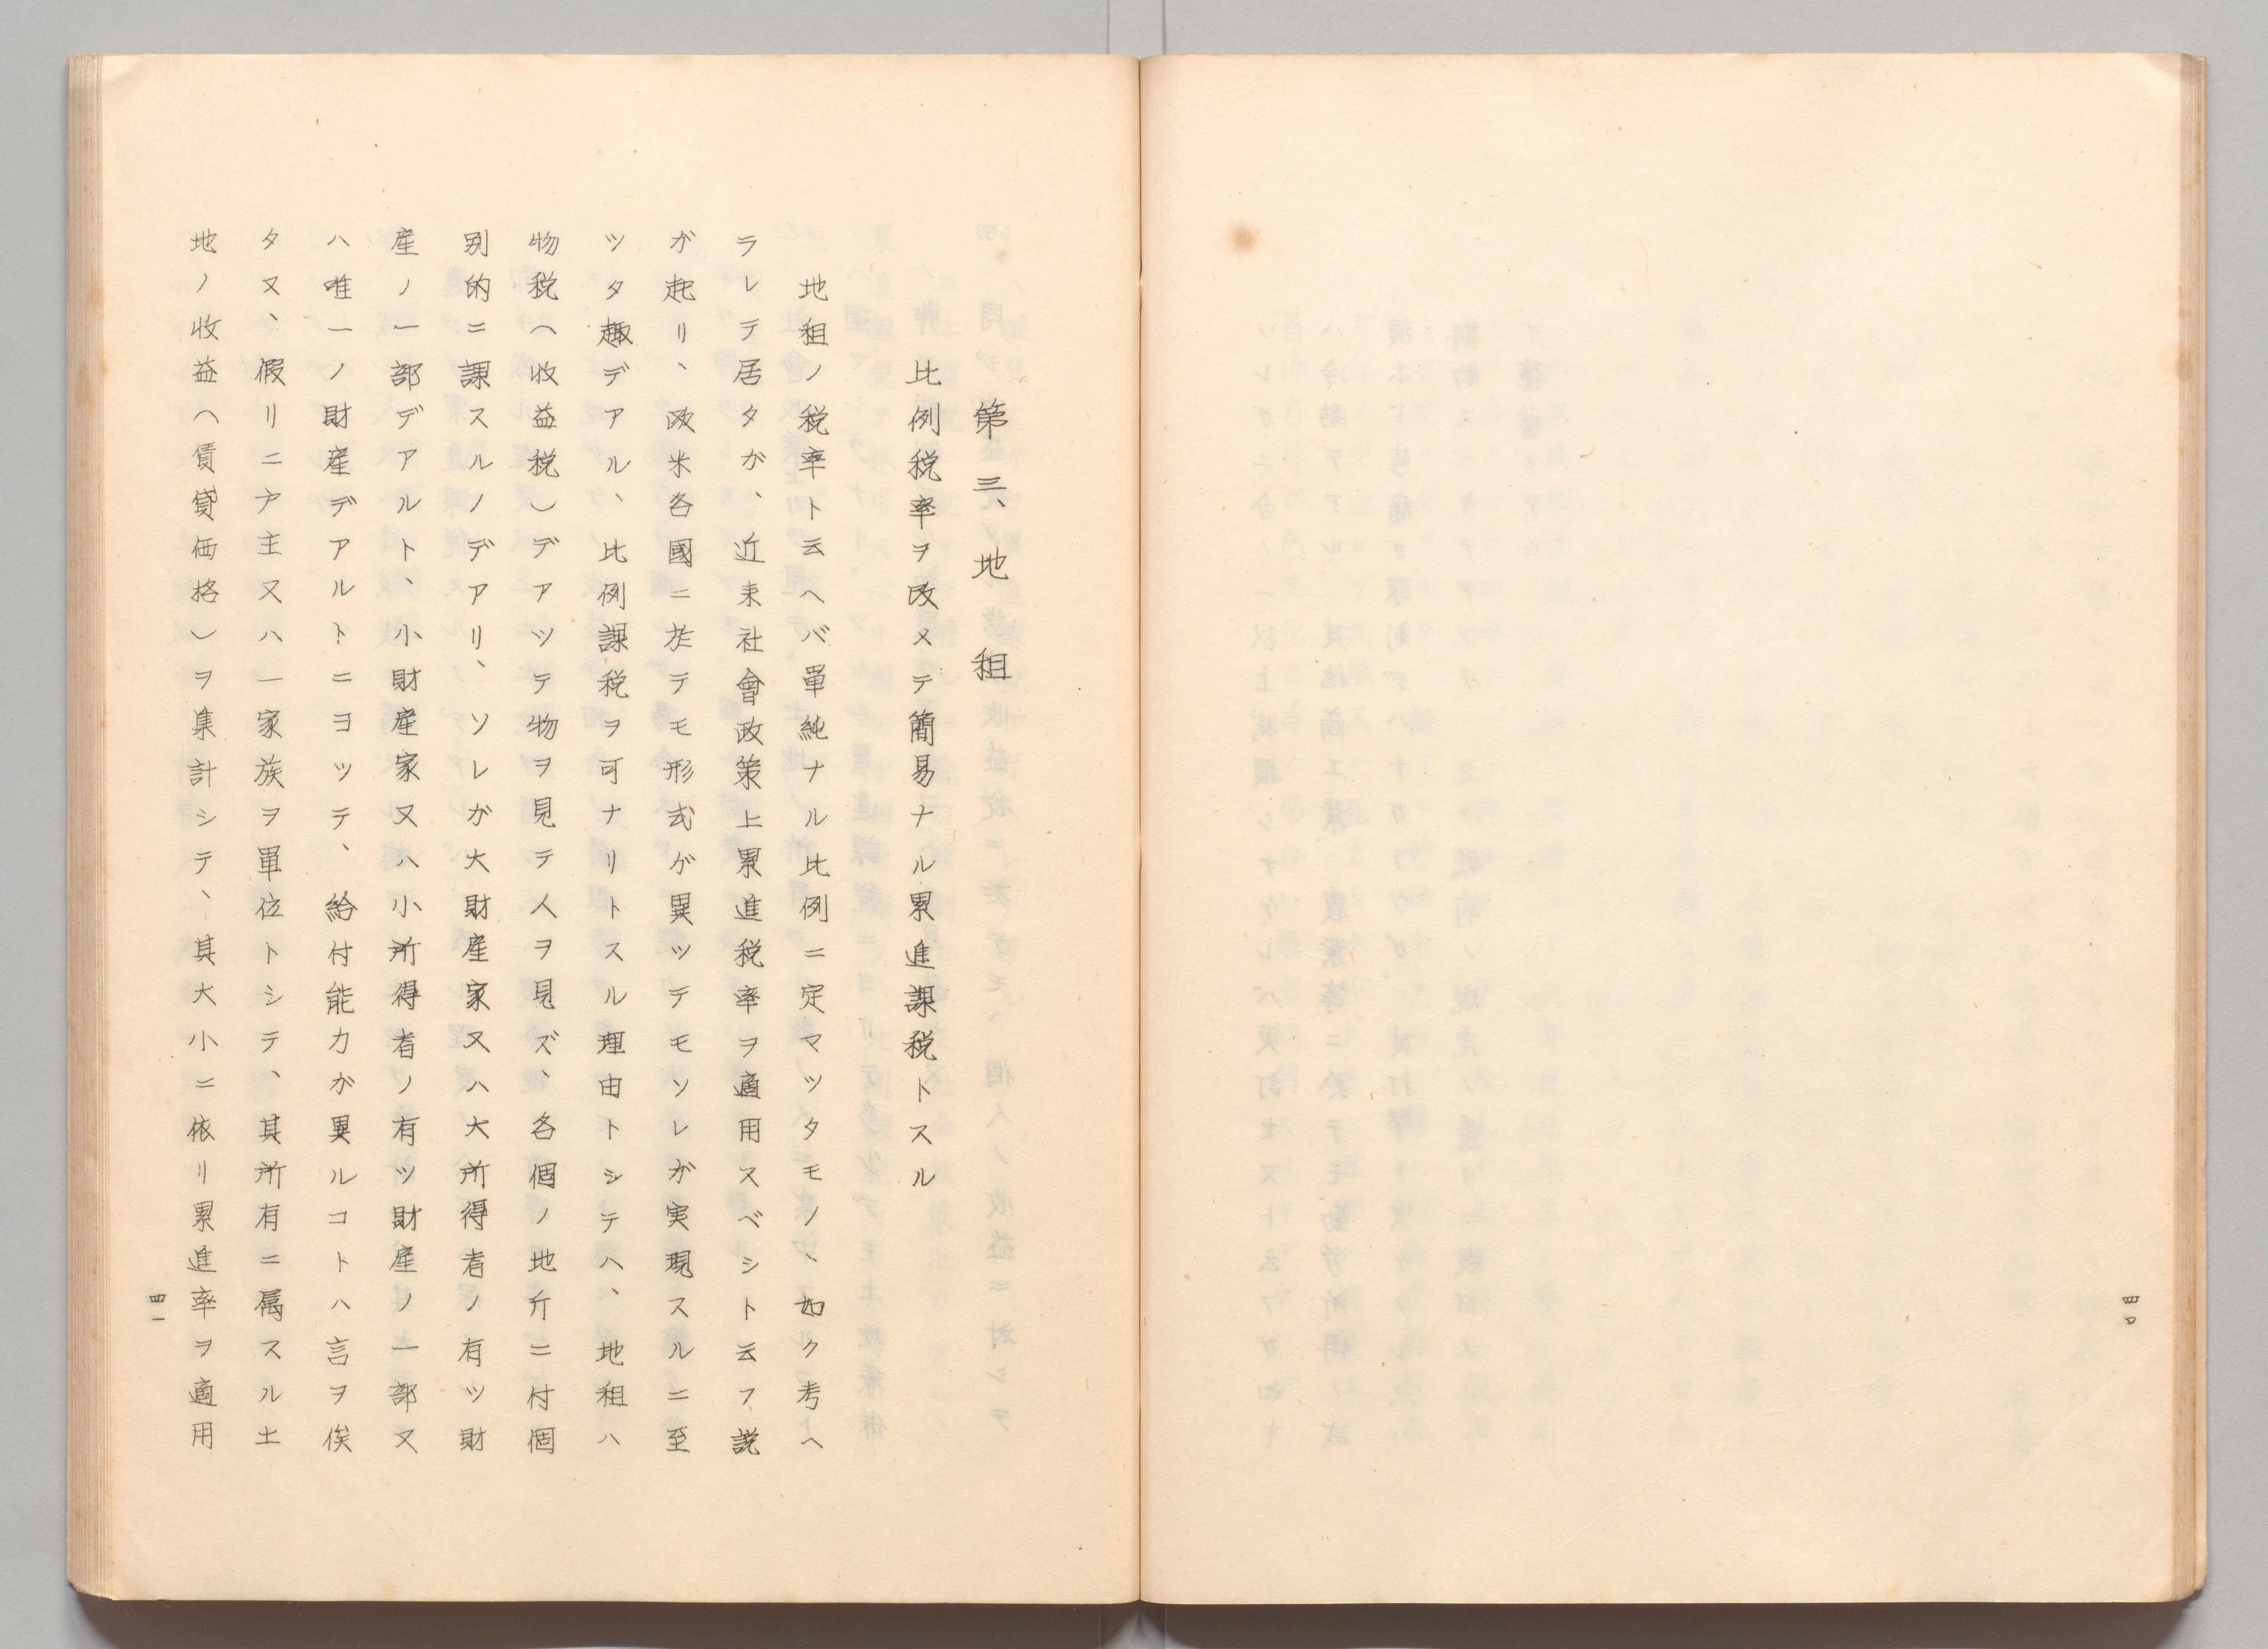 四〇
第三、地租
比例税率ヲ改メテ簡易ナル累進課税トスル
地租ノ税率ト云ヘバ單純ナル比例ニ定マツタモノヽ如ク考ヘ
ラレテ居タガ、近来社會政策上累進税率ヲ適用スベシト云フ説
ガ起リ、欧米各國ニ於テモ形式ガ異ツテモソレガ実現スルニ至
ツタ趣デアル、比例課税ヲ可ナリトスル理由トシテハ、地租ハ
物税（収益税）デアツテ物ヲ見テ人ヲ見ズ、各個ノ地所ニ付個
別的ニ課スルノデアリ、ソレガ大財産家又ハ大所得者ノ有ツ財
産ノ一部デアルト、小財産家又ハ小所得者ノ有ツ財産ノ一部又
ハ唯一ノ財産デアルトニヨツテ、給付能力ガ異ルコトハ言ヲ俟
タヌ、假リニ戸主又ハ一家族ヲ單位トシテ、其所有ニ属スル土
地ノ收益（賃貸価格）ヲ集計シテ、其大小ニ依リ累進率ヲ適用
四一